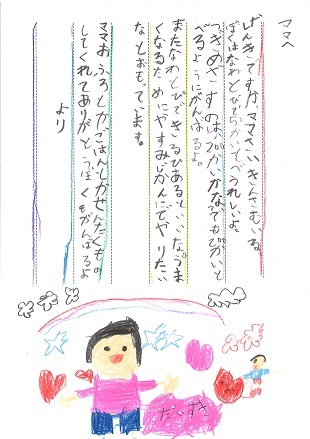 ママへ
げんきですか。ママさいきんさむいね
ぼくはなわとび
うれしいよ。
つぎめざすのは
べるようにがんばるよ。
またなわとび
ひあるといいな。うま
くなるためにやすみじかんにでやりたい
なとおもっています。
ママおふろとかごはんとかせんたくもの
してくれてありがとう。ぼくもがんばるよ
より
だいすき